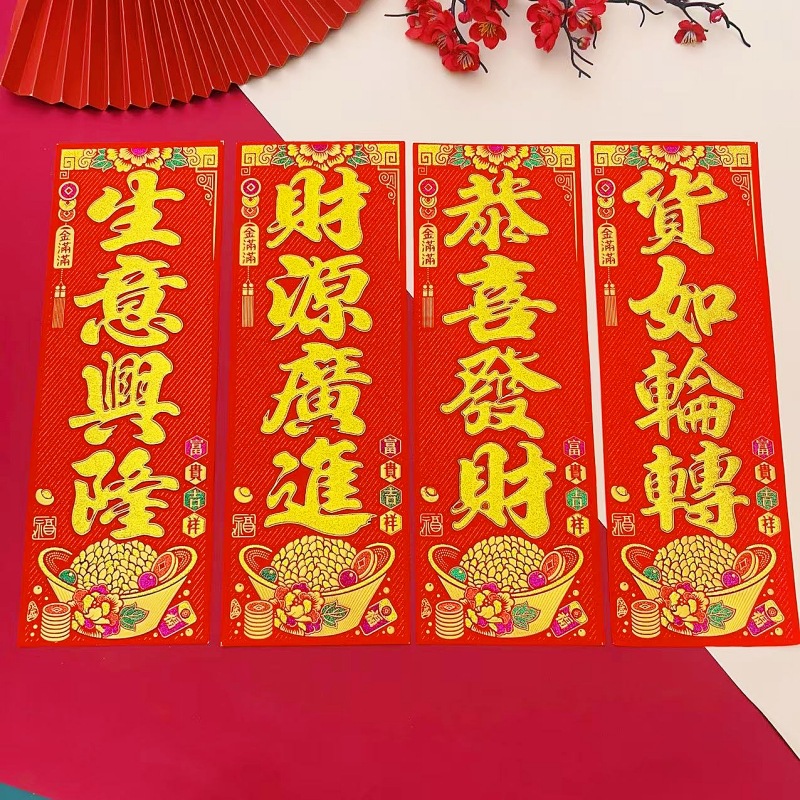 生意興隆
金滿滿
富貴吉祥
福
財源廣進
金滿滿
富貴吉祥
福
恭喜發財
金滿滿
富貴吉祥
福
貨如輪轉
金滿滿
富貴吉祥
福